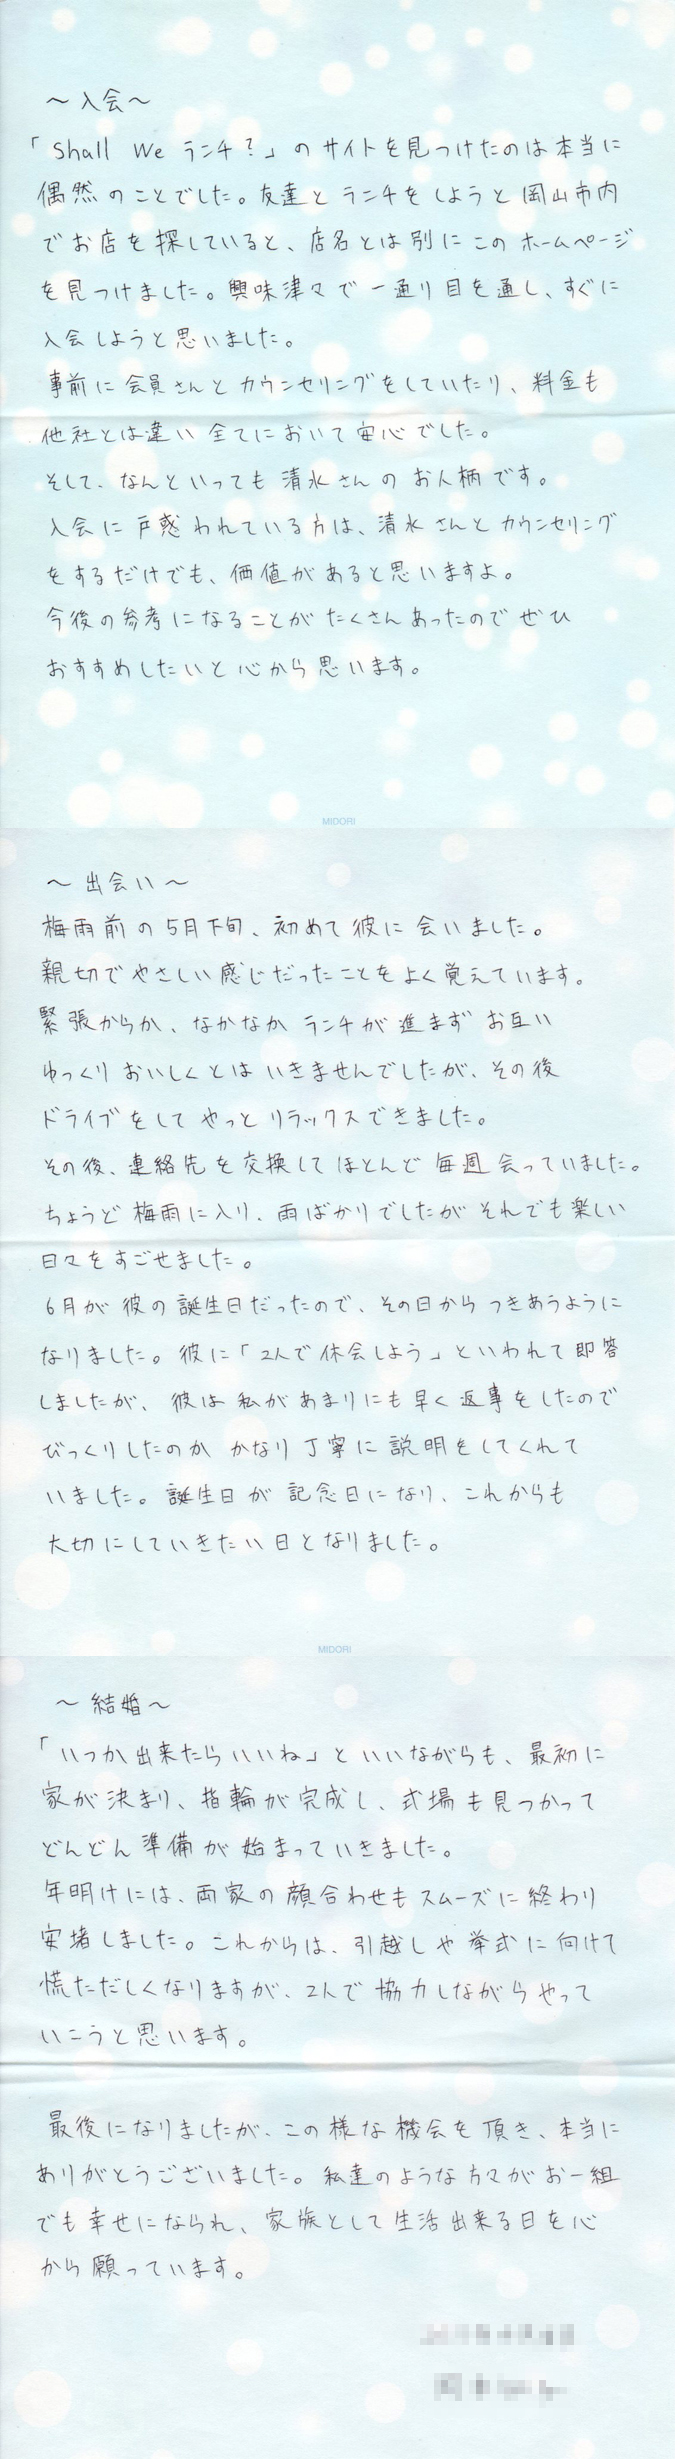 ～入会～
「Shall We ランチ？」のサイトを見つけたのは本当に
偶然のことでした。友達とランチをしようと岡山市内
でお店を探していると、店名とは別にこのホームページ
を見つけました。興味津々で一通り目を通し、すぐに
入会しようと思いました。
事前に会員さんとカウンセリングをしていたり、料金も
他社とは違い全てにおいて安心でした。
そして、なんといっても清水さんのお人柄です。
入会に戸惑われている方は、清水さんとカウンセリング
をするだけでも、価値があると思いますよ。
今後の参考になることがたくさんあったのでぜひ
おすすめしたいと心から思います。
MIDORI
～出会い～
梅雨前の5月下旬、初めて彼に会いました。
親切でやさしい感じだったことをよく覚えています。
緊張からか、なかなかランチが進まずお互い
ゆっくりおいしくとはいきませんでしたが、その後
ドライブをしてやっとリラックスできました。
その後、連絡先を交換してほとんど毎週会っていました。
ちょうど梅雨に入り、雨ばかりでしたがそれでも楽しい
日々をすごせました。
6月が彼の誕生日だったので、その日からつきあうように
なりました。彼に「2人で休会しよう」といわれて即答
しましたが、彼は私があまりにも早く返事をしたので
びっくりしたのかかなり丁寧に説明をしてくれて
いました。誕生日が記念日になり、これからも
大切にしていきたい日となりました。
MIDORI
～結婚～
「いつか出来たらいいね」といいながらも、最初に
家が決まり、指輪が完成し、式場も見つかって
どんどん準備が始まっていきました。
年明けには、両家の顔合わせもスムーズに終わり
安堵しました。これからは、引越しや挙式に向けて
慌ただしくなりますが、2人で協力しながらやって
いこうと思います。
最後になりましたが、この様な機会を頂き、本当に
ありがとうございました。私達のような方々がお一組
でも幸せになられ、家族として生活出来る日を心
から願っています。